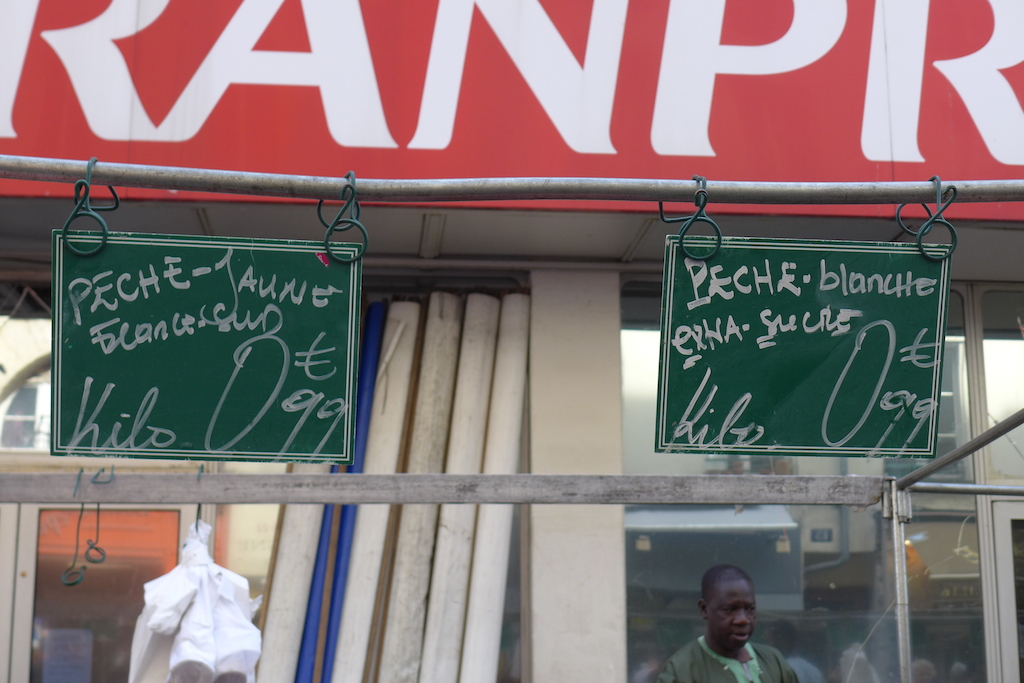 RANPR
PECHE-JAUNE
0€99
Kilo
PECHE-blanche
SUCRE
0€99
Kilo